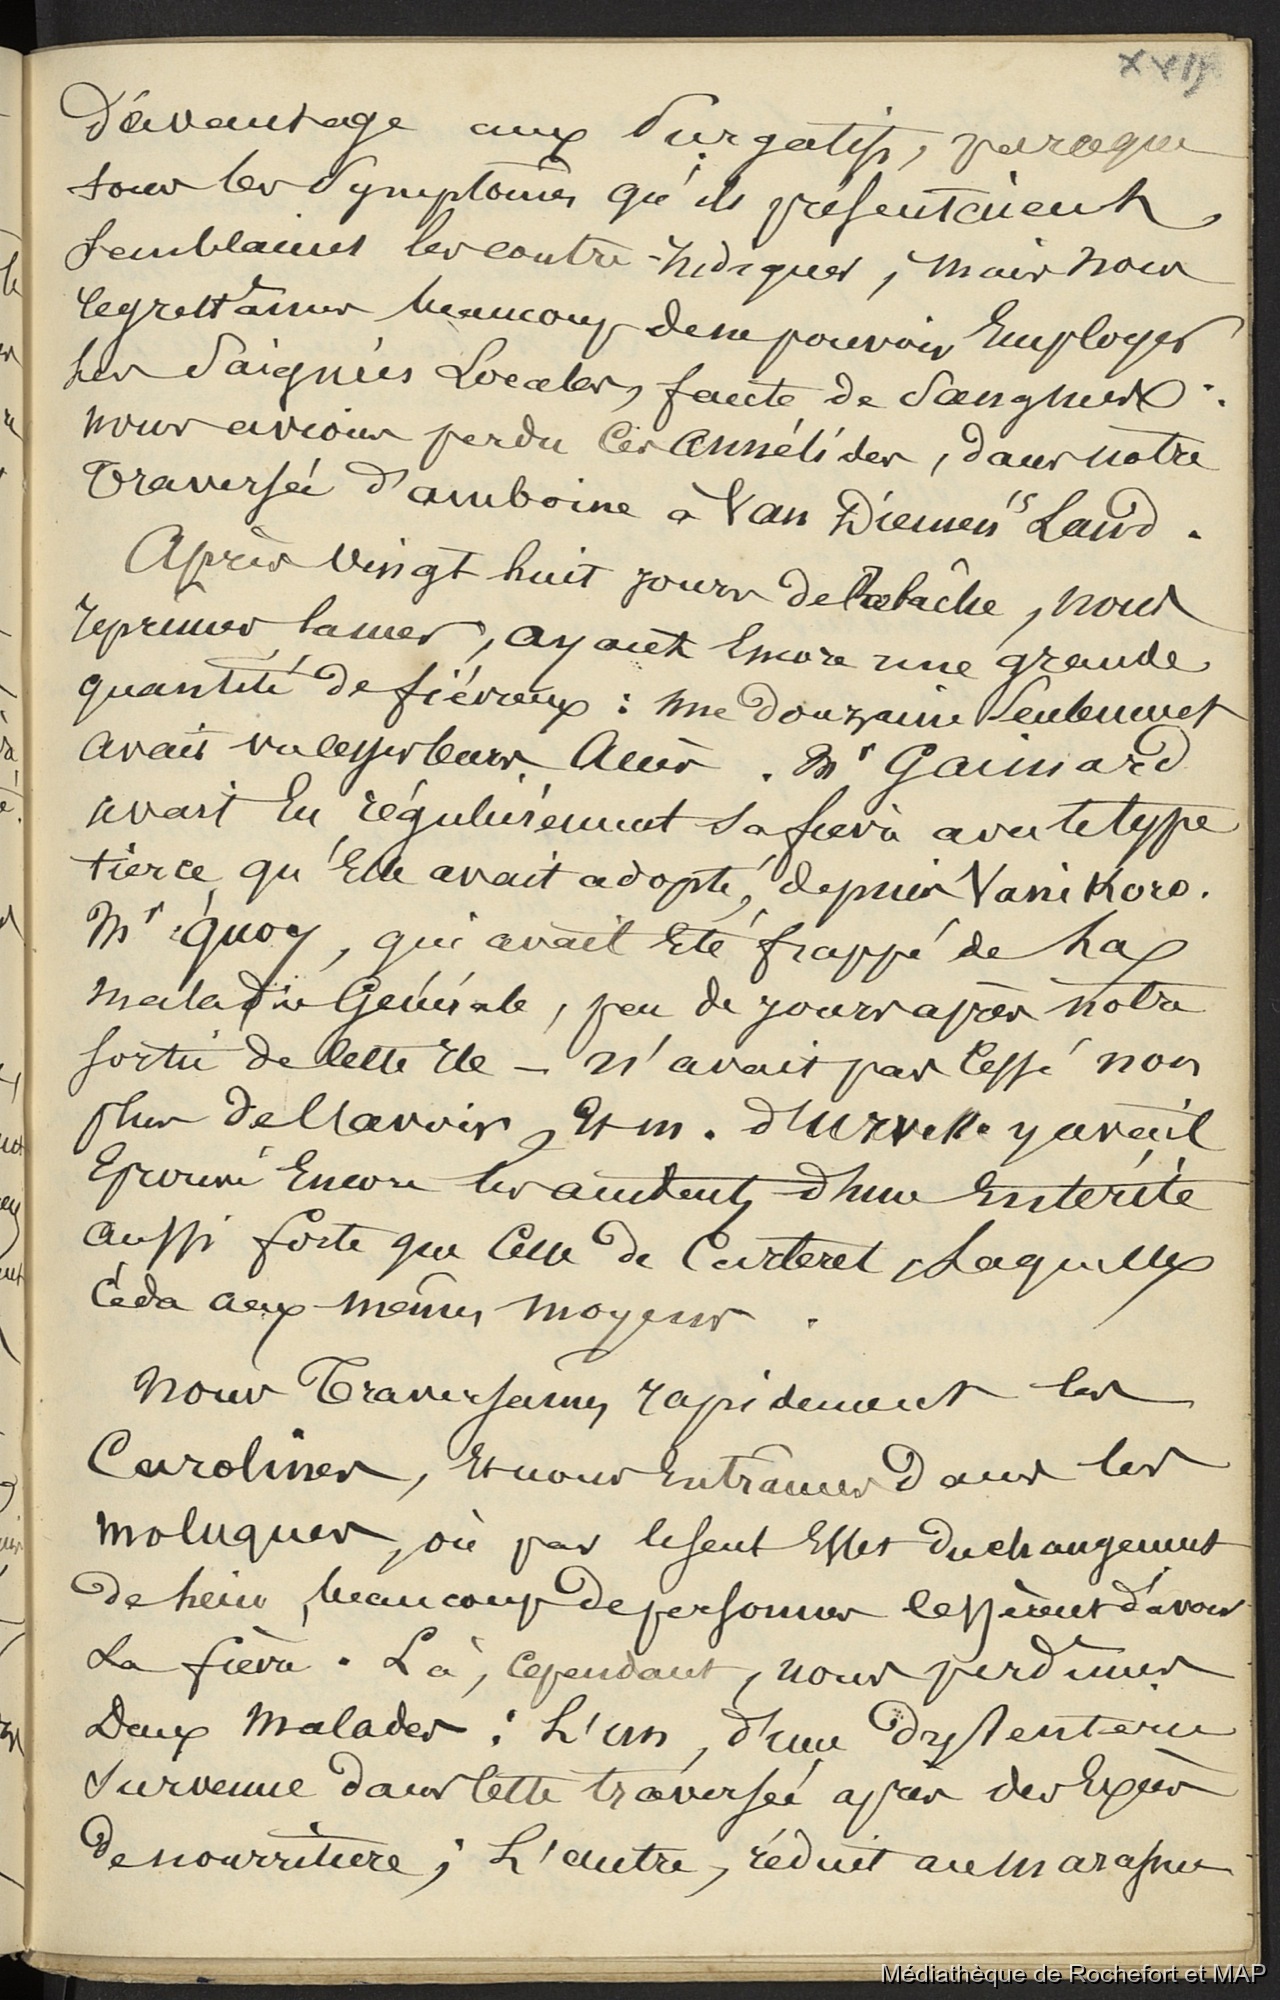 D'avantage aux Purgatifs, parceque
tous les Symptômes qu'ils présentaient,
Semblaient les contre-Indiquer ; mais nous
regrettâmes beaucoup de ne pouvoir Employer
les Saignées Locales, faute de Sangsues.
nous avions perdu Ces annélides, dans notre
Traversée d'amboine à Van Diemen's Land.
Après Vingt huit jours de Relâche, nous
reprimes la mer, ayant Encore une grande
quantité de fiévreux : une douzaine Seulement
avait vu cesser leurs Accès. Mr Gaimard
avait Eu régulièrement sa fièvre avec le type
tierce qu'Elle avait adopté, depuis Vanikoro.
Mr Quoy, qui avait Eté frappé de La
maladie Générale, peu de jours après notre
sortie de Cette Ile - n'avait pas Cessé non
plus de L'avoir, Et m. d'Urville y avait
Eprouvé Encore les accidents d'une Entérite
aussi forte que Celle de Carteret, Laquelle
Céda aux mêmes moyens.
Nous Traversâmes rapidement les
Carolines, Et nous Entrâmes Dans les
moluques, où par le seul Effet du changement
de lieu, beaucoup de personnes Cessèrent d'avoir
La fièvre. Là, cependant, nous perdîmes
Deux Malades : L'un, d'une Dyssenterie
Survenue dans Cette traversée après des Excès
de nourriture ; L'autre, réduit au marasme
Médiathèque de Rochefort et MAP